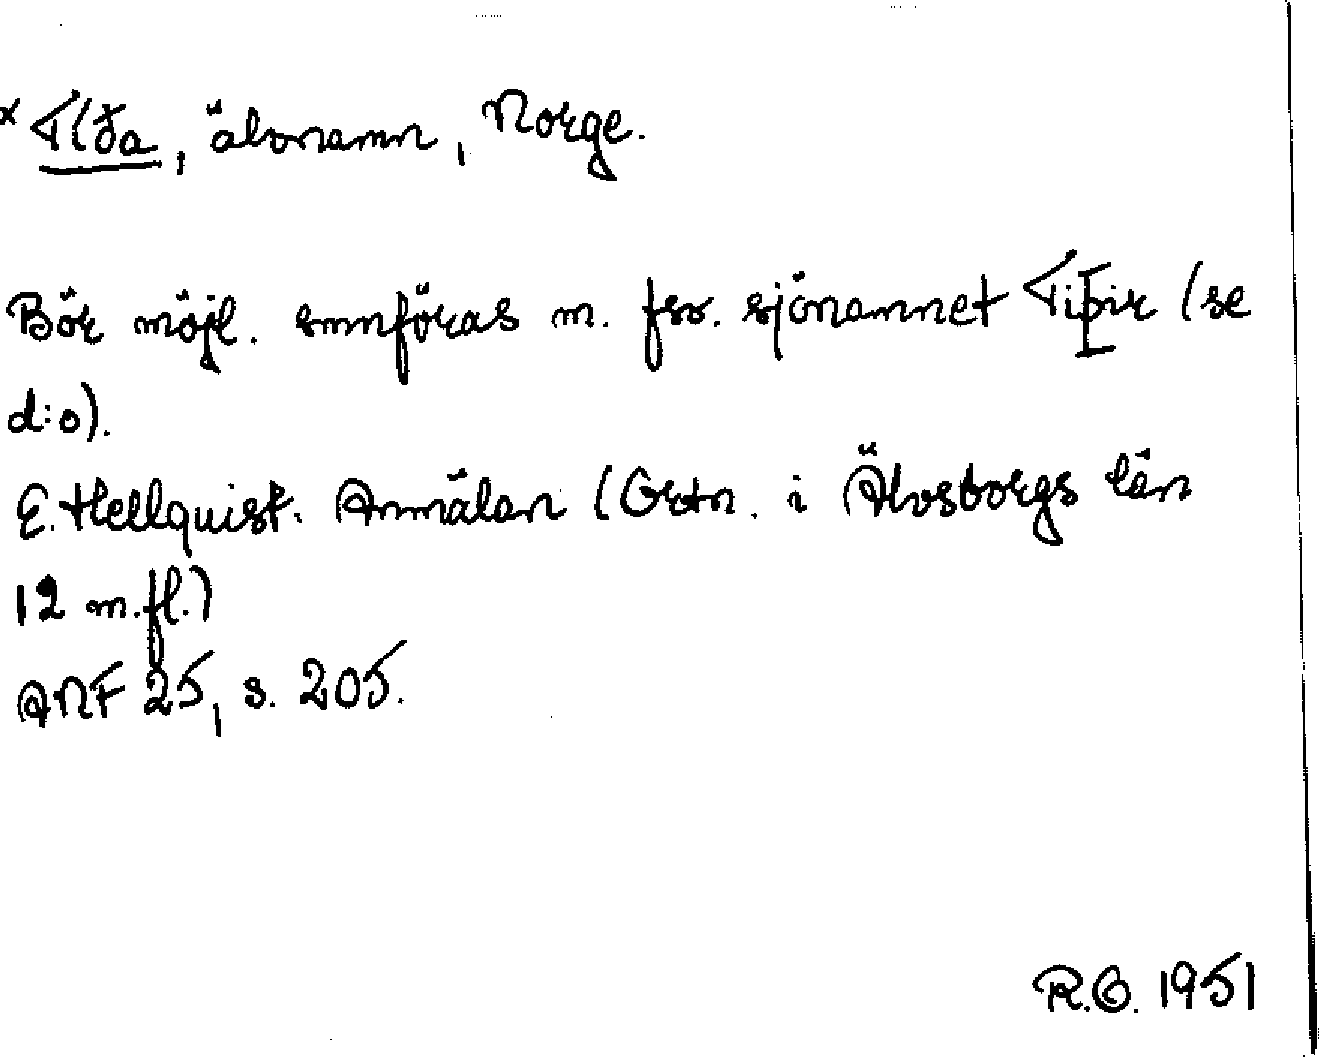 *Tíða, älvnamn, Norge.
Bör möjl. smnföras m. fsv. sjönamnet Tiþir (se
d:o).
E. Hellquist. Anmälan (Ortn. i Älvsborgs län
12 m.fl.)
ANF 25, s. 205.
R.O. 1951